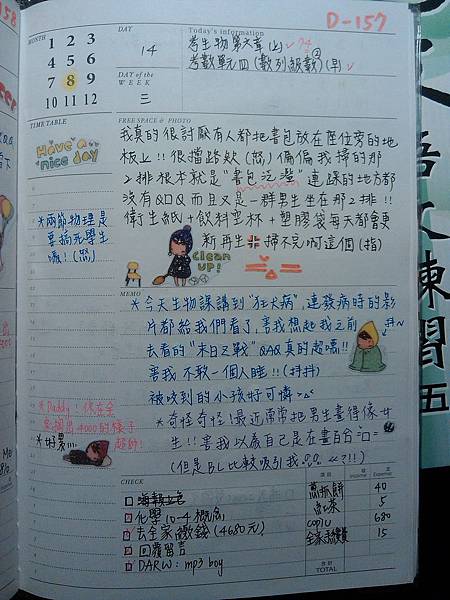 D-157
MONTH
1 2 3
4 5 6
7 8 9
10 11 12
DAY
14
DAY of the
WEEK
三
Today's information
考生物第六章(上)
考數單元四(數列級數)(早)
TIME TABLE
Have a
nice day
*兩節物理是
要搞死學生
嗎!(怒)
FREE SPACE & PHOTO
我真的很討厭有人都把書包放在座位旁的地
板上!!很擋路欸(怒)偏偏我掃的那
2排根本就是"書包泛濫"連踩的地方都
沒有QDQ而且又是一群男生坐在那2排!!
衛生紙+飲料空杯+塑膠袋每天都會更
新再生
掃不完啊這個(指)
clean
up!
MEMO
*今天生物課講到"狂犬病"連發病時的影
片都給我們看了,害我想起我之前
去看的"末日之戰"QAQ真的超噁!!
害我不敢一個人睡!!(抖抖)
被咬到的小孩好可憐
抖~
*Daddy!你在全
家掏出4000的樣子
超帥!
*好累
*奇怪奇怪!最近常常把男生畫得像女
生!!害我以為自己是在畫百合
(但是BL比較吸引我
CHECK
化學10-4概念
去全家繳錢(4680元)
回覆留言
DARW: mp3 boy
項目
收入
Income
支出
Expense
蔥抓餅
40
5
680
15
合計
TOTAL
練習五